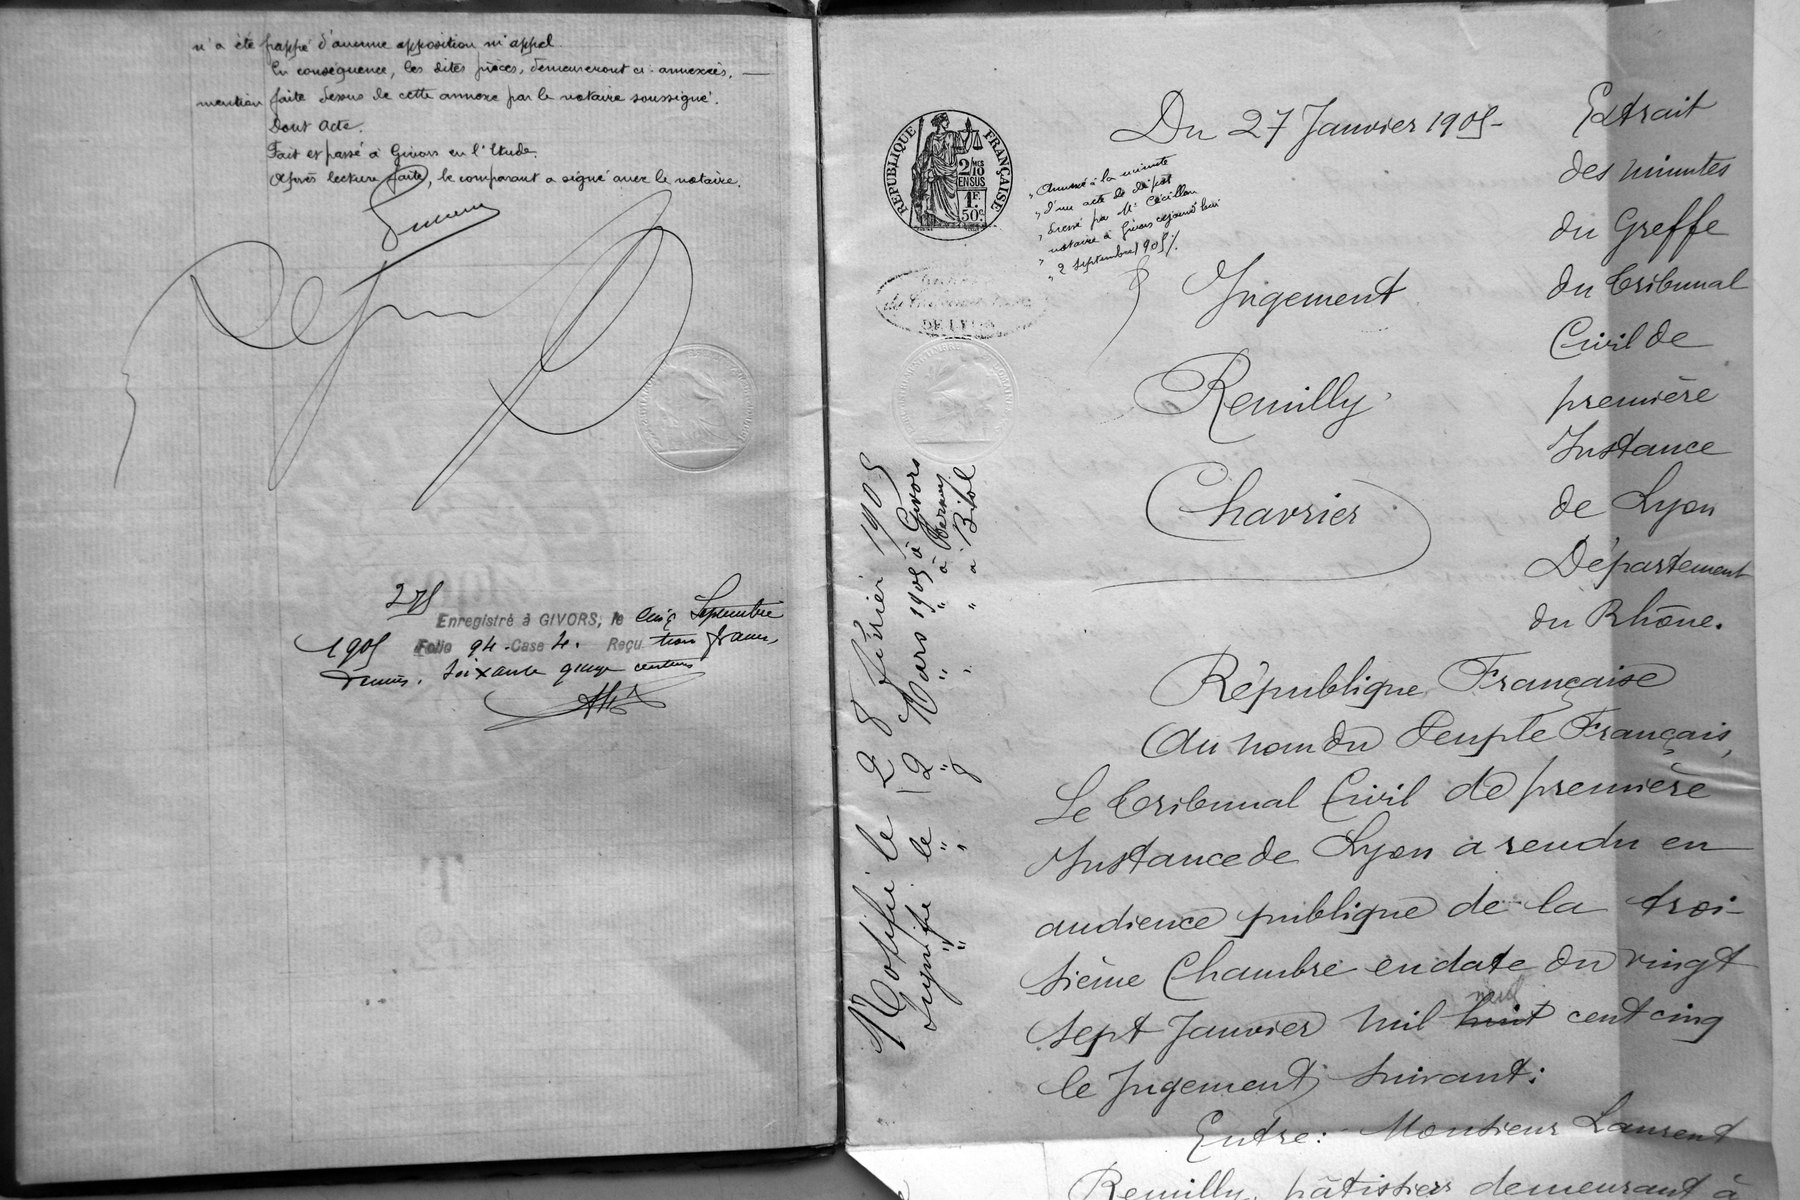 n'a été frappé d'aucune opposition ni appel.
En conséquence, les dites pièces, demeureront ci-annexées, —
mention faite dessus de cette annexe par le notaire soussigné.
Dont Acte.
Fait et passé à Givors en l'Etude.
Après lecture faite, le comparant a signé avec le notaire.
Enregistré à GIVORS, le cinq Septembre
1905 Folio 94 Case 4. Reçu trois francs
soixante quinze centimes
RÉPUBLIQUE FRANÇAISE
2/10 MES
EN SUS
1F.
50c.
Du 27 Janvier 1905-
„ Annexé à la minute
„ d'un acte de dépôt
„ dressé par Me Cécillon
„ notaire à Givors cejourd'hui
„ 2 septembre 1905 %
DE LYON
Jugement
Remilly
Chavrier
Extrait
des minutes
du Greffe
du Tribunal
Civil de
première
Instance
de Lyon
Département
du Rhône.
Notifié le 28 février 1905
Signifié le 2 Mars 1905 à Givors
" " 8 " " à
République Française
Au nom du Peuple Français,
Le Tribunal Civil de première
Instance de Lyon a rendu en
audience publique de la troi-
sième Chambre en date du vingt
neuf
sept Janvier mil huit cent cinq
le Jugement suivant:
Entre: Monsieur Laurent
Remilly, pâtissier demeurant à